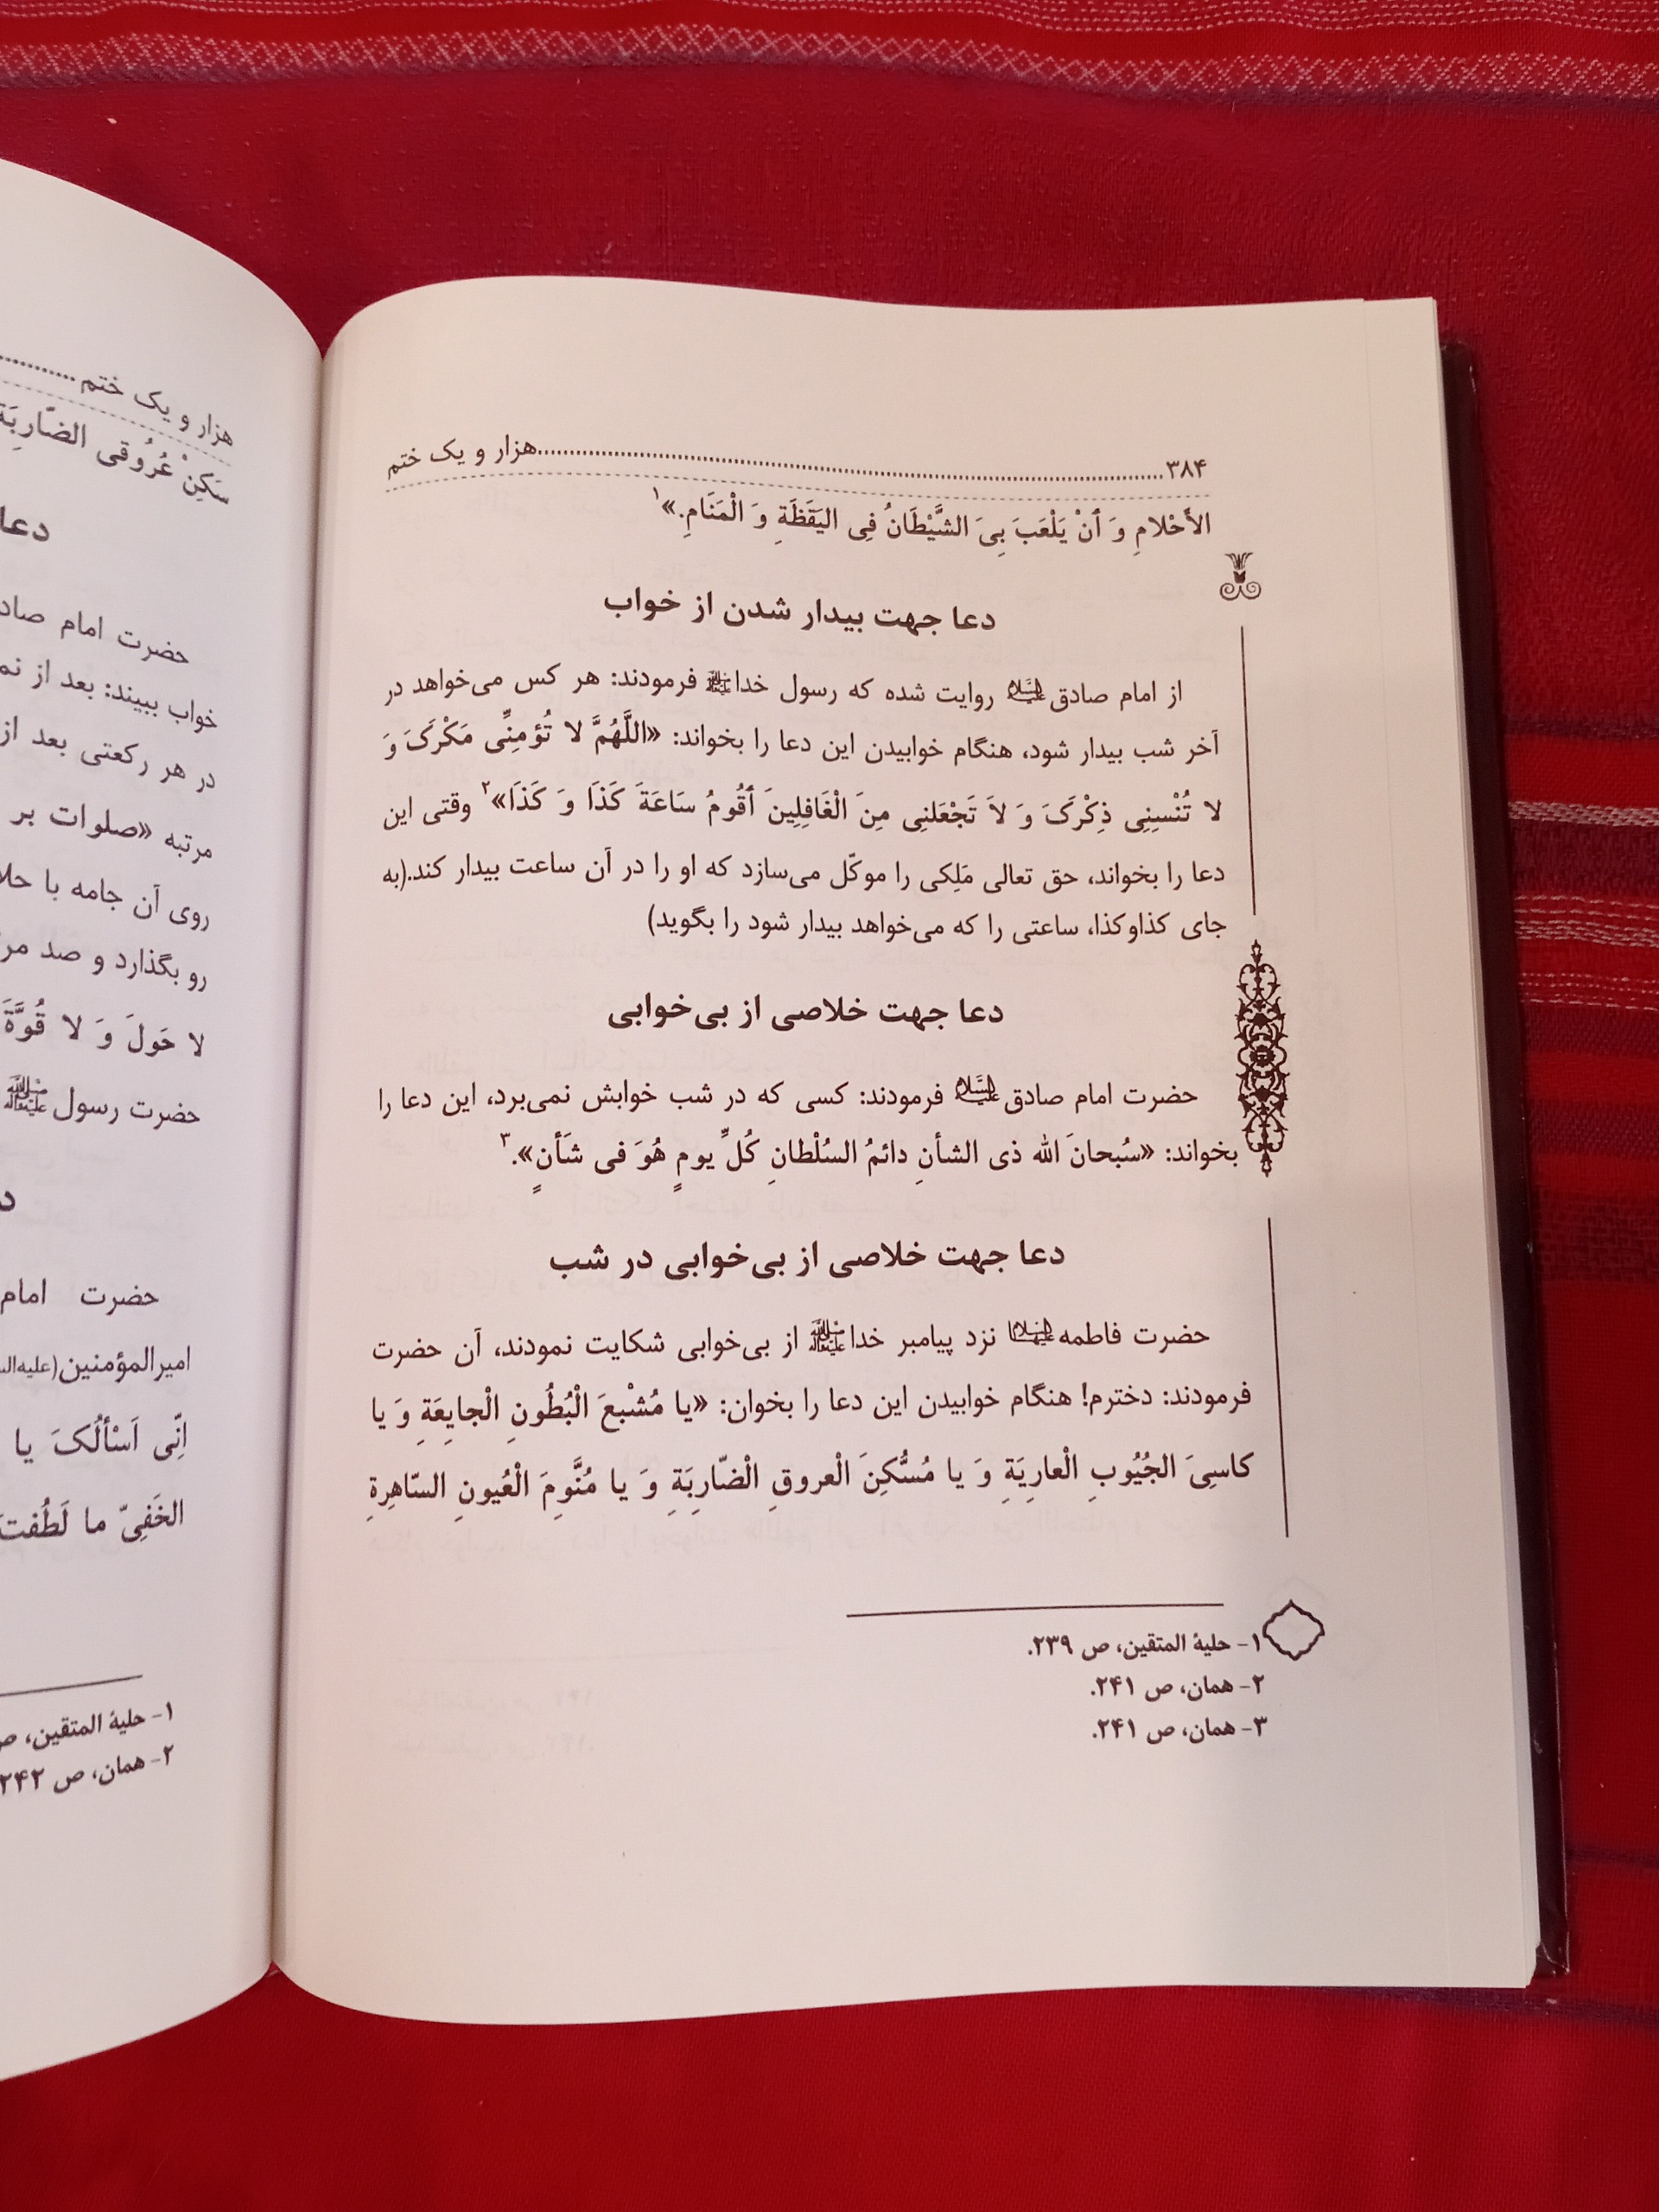 ۳۸۴........................................هزار و یک ختم
الأَحْلامِ وَ أنْ یَلْعَبَ بِیَ الشَّیْطَانُ فِی الیَقَظَةِ وَ الْمَنَامِ.»۱
دعا جهت بیدار شدن از خواب
از امام صادق علیه‌السلام روایت شده که رسول خدا ﷺ فرمودند: هر کس می‌خواهد در
آخر شب بیدار شود، هنگام خوابیدن این دعا را بخواند: «اللَّهُمَّ لا تُؤمِنِّی مَکْرَکَ وَ
لا تُنْسِنِی ذِکْرَکَ وَ لاَ تَجْعَلنِی مِنَ الْغَافِلِینَ أقُومُ سَاعَةَ کَذَا وَ کَذَا»۲ وقتی این
دعا را بخواند، حق تعالی مَلِکی را موکّل می‌سازد که او را در آن ساعت بیدار کند.(به
جای کذاوکذا، ساعتی را که می‌خواهد بیدار شود را بگوید)
دعا جهت خلاصی از بی‌خوابی
حضرت امام صادق علیه‌السلام فرمودند: کسی که در شب خوابش نمی‌برد، این دعا را
بخواند: «سُبحانَ الله ذی الشأنِ دائمُ السُلْطانِ کُلِّ یومٍ هُوَ فی شَأنٍ».۳
دعا جهت خلاصی از بی‌خوابی در شب
حضرت فاطمه علیهاالسلام نزد پیامبر خدا ﷺ از بی‌خوابی شکایت نمودند، آن حضرت
فرمودند: دخترم! هنگام خوابیدن این دعا را بخوان: «یا مُشْبِعَ الْبُطُونِ الْجایِعَةِ وَ یا
کاسِیَ الجُیُوبِ الْعارِیَةِ وَ یا مُسُّکِنَ الْعروقِ الْضّارِبَةِ وَ یا مُنَّوِمَ الْعُیونِ السّاهِرةِ
۱- حلیة المتقین، ص ۲۳۹.
۲- همان، ص ۲۴۱.
۳- همان، ص ۲۴۱.
هزار و یک ختم
سَکِنْ عُرُوقی الضّارِبَة
دعا
حضرت امام صاد
خواب ببیند: بعد از نم
در هر رکعتی بعد از
مرتبه «صلوات بر
روی آن جامه با حلا
رو بگذارد و صد مر
لا حَولَ وَ لا قُوَّةَ
حضرت رسول ﷺ
د
حضرت امام
امیرالمؤمنین(علیه‌الس
اِنِّی اَسْألُکَ یا
الخَفِیّ ما لَطُفت
۱- حلیة المتقین، ص
۲- همان، ص ۲۴۲